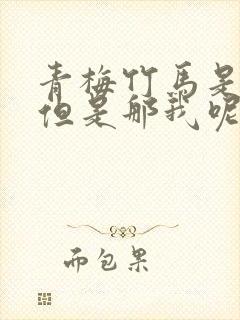 青梅竹马是
但是那我呢
而包果